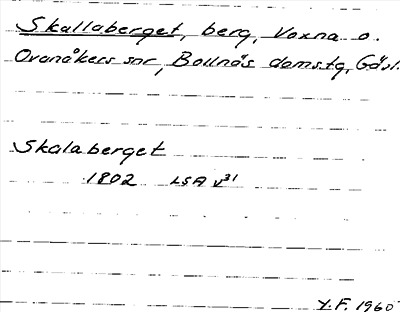 Skallaberget, berg, Voxna o.
Ovanåkers snr, Bollnäs domstg, Gävl.
Skalaberget
1802 LSA v31
Y.F. 1960